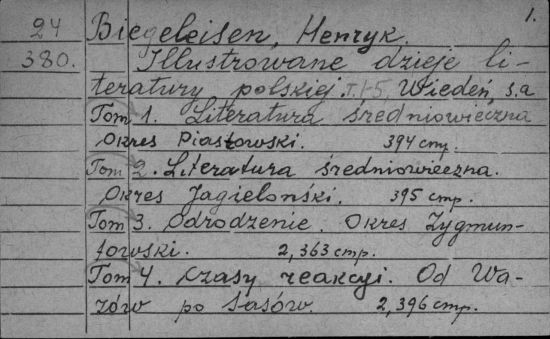 1.
24 Biegeleisen, Henryk.
380. Illustrowane dzieje li-
teratury polskiej. T. 1-5. Wiedeń, s.a
Tom 1. Literatura średniowieczna
Okres Piastowski. 394 стр.
Tom 2. Literatura średniowieczna.
Okres Jagieloński. 395 стр.
Tom 3. Odrodzenie. Okres Zygmun-
towski. 2,363 стр.
Tom 4. Czasy reakcyi. Od Wa-
zów po Sasów. 2,396 стр.